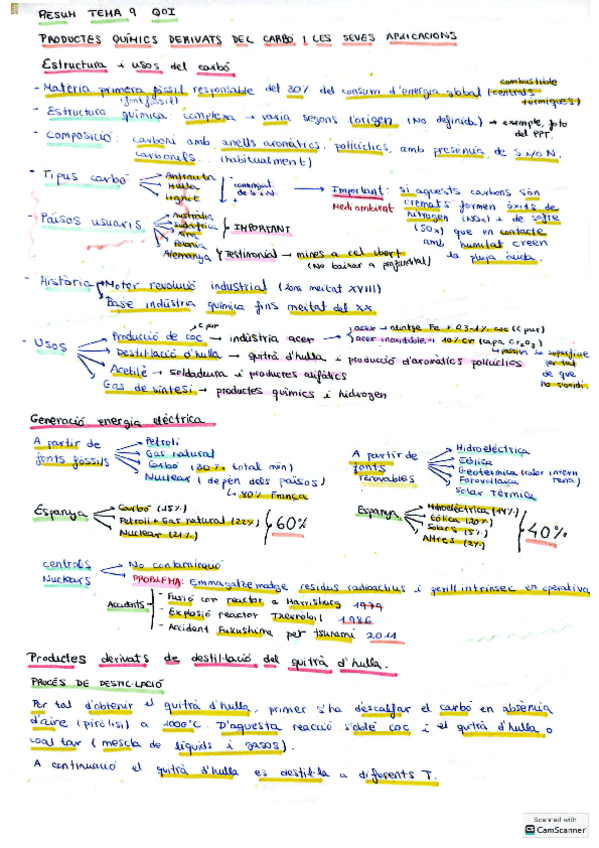 RESUM TEMA 9 QOI
PRODUCTES QUÍMICS DERIVATS DEL CARBÓ I LES SEVES APLICACIONS
Estructura i usos del carbó
- Matèria primera fòssil responsable del 30% del consum d'energia global (combustible centrals tèrmiques)
(font fòssil)
- Estructura química: complexa → varia segons l'origen (No definida) → exemple, foto del PPT.
- Composició: carboni amb anells aromàtics, policíclics, amb presència de S, N o N.
carbonils. (habitualment)
- Tipus carbó
Antracita
Hulla
Lignit
contingut de S i N
→ Important: si aquests carbons són
Medi ambient
cremats formen òxids de
nitrogen (NOx) i de sofre
(SOx) que en contacte
amb humitat creen
la pluja àcida.
- Països usuaris
Austràlia
Xina
Polònia
Alemanya
IMPORTANT
Testimonial → mines a cel obert
(No baixar a profunditat)
- Història
Motor revolució industrial (2ona meitat XVIII)
Base indústria química fins meitat del XX
- Usos
Producció de coc → indústria acer
C pur
acer → Fe + 0,3-1% coc (C pur)
acer inoxidable → 10% Cr (capa Cr2O3)
la superfície
per tal
de que
no s'oxidi
Destil·lació d'hulla → quitrà d'hulla i producció d'aromàtics policíclics
Acetilè → soldadura i productes alifàtics
Gas de síntesi → productes químics i hidrogen
Generació energia elèctrica
A partir de
fonts fòssils
Petroli
Gas natural
Carbó (30% total món)
Nuclear (depèn dels països)
↳ 80% França
A partir de
fonts
renovables
Hidroelèctrica
Eòlica
Geotèrmica (calor intern terra)
Fotovoltaica
Solar Tèrmica
Espanya
Carbó (15%)
Petroli + Gas natural (22%)
Nuclear (21%)
60%
Espanya
Hidroelèctrica (14%)
Eòlica (20%)
Solars (5%)
Altres (2%)
40%
centrals
Nuclears
No contaminació
PROBLEMA: Emmagatzematge residus radioactius i perill intrínsec en operativa
Accidents
- Fusió cor reactor a Harrisburg 1979
- Explosió reactor Txernòbil 1986
- Accident Fukushima per tsunami 2011
Productes derivats de destil·lació del quitrà d'hulla.
PROCÉS DE DESTIL·LACIÓ
Per tal d'obtenir el quitrà d'hulla, primer s'ha d'escalfar el carbó en absència
d'aire (piròlisi) a 1000°C. D'aquesta reacció s'obté coc i el quitrà d'hulla o
coal tar (mescla de líquids i gasos).
A continuació el quitrà d'hulla es destil·la a diferents T.
Scanned with
CamScanner